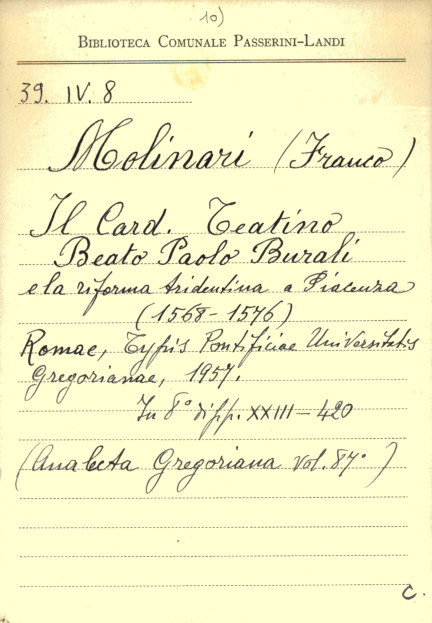 10)
BIBLIOTECA COMUNALE PASSERINI-LANDI
39. IV. 8
Molinari (Franco)
Il Card. Teatino
Beato Paolo Burali
e la riforma tridentina a Piacenza
(1568-1576)
Romae, Typis Pontificiae Universitatis
Gregorianae, 1957.
In 8° di pp. XXIII-420
(Analecta Gregoriana vol. 87°)
C.